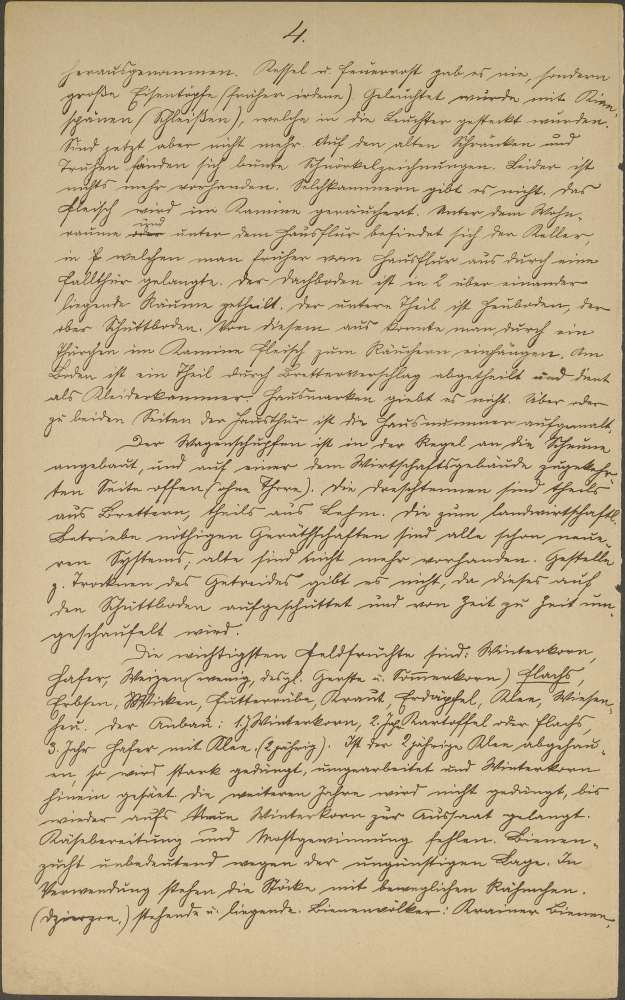 4.
herausgenommen. Kessel u. Feuerrost gab es nie, sondern
große Eisentöpfe (früher irdene) Geleuchtet wurde mit Kien-
spänen (Schleißen), welche in die Leuchter gesteckt wurden.
Sind jetzt aber nicht mehr. Auf den alten Schränken und
Truhen fanden sich bunte Schnörkelzeichnungen. Leider ist
nichts mehr vorhanden. Selchkammern gibt es nicht, das
Fleisch wird im Kamine geräuchert. Unter dem Wohn-
raume und unter dem Hausflur befindet sich der Keller,
in welchen man früher vom Hausflur aus durch eine
Fallthür gelangte. Der Dachboden ist in 2 über einander
liegende Räume getheilt. Der untere Theil ist Heuboden, der
ober Schüttboden. Von diesem aus konnte man durch ein
Thürchen im Kamine Fleisch zum Räuchern einhängen. Am
Boden ist ein Theil durch Bretterverschlag abgetheilt und dient
als Kleiderkammer. Hausmarken giebt es nicht. Über oder
zu beiden Seiten der Hausthür ist die Hausnummer aufgemalt.
Der Wagenschupfen ist in der Regel an die Scheune
angebaut, und auf einer dem Wirtschaftsgebäude zugekehr-
ten Seite offen (ohne Thore). Die Dreschtennen sind theils
aus Brettern, theils aus Lehm. Die zum landwirtschaftl.
Betriebe nöthigen Geräthschaften sind alle schon neue-
ren Systems; alte sind nicht mehr vorhanden. Gestelle
z. Trocknen des Getreides gibt es nicht, da dieses auf
den Schüttboden aufgeschüttet und von Zeit zu Zeit um-
geschaufelt wird.
Die wichtigsten Feldfrüchte sind: Winterkorn,
Hafer, Weizen (wenig, desgl. Gerste u. Sommerkorn) Flachs,
Erbsen, Wicken, Futterrübe, Kraut, Erdäpfel, Klee, Wiesen-
heu. Der Anbau: 1.) Winterkorn, 2. Jhr Kartoffel oder Flachs,
3. Jahr Hafer mit Klee. (2 jährig). Ist der 2 jährige Klee abgehau-
en, so wird stark gedüngt, umgearbeitet und Winterkorn
hinein gesäet. Die weiteren Jahre wird nicht gedüngt, bis
wieder aufs Neue Winterkorn zur Aussaat gelangt.
Käsebereitung und Mostgewinnung fehlen. Bienen-
zucht unbedeutend wegen der ungünstigen Lage. In
Verwendung stehen die Stöcke mit beweglichen Rähmchen.
(Dzierzon,) stehende u. liegende. Bienenvölker: Krainer Bienen,